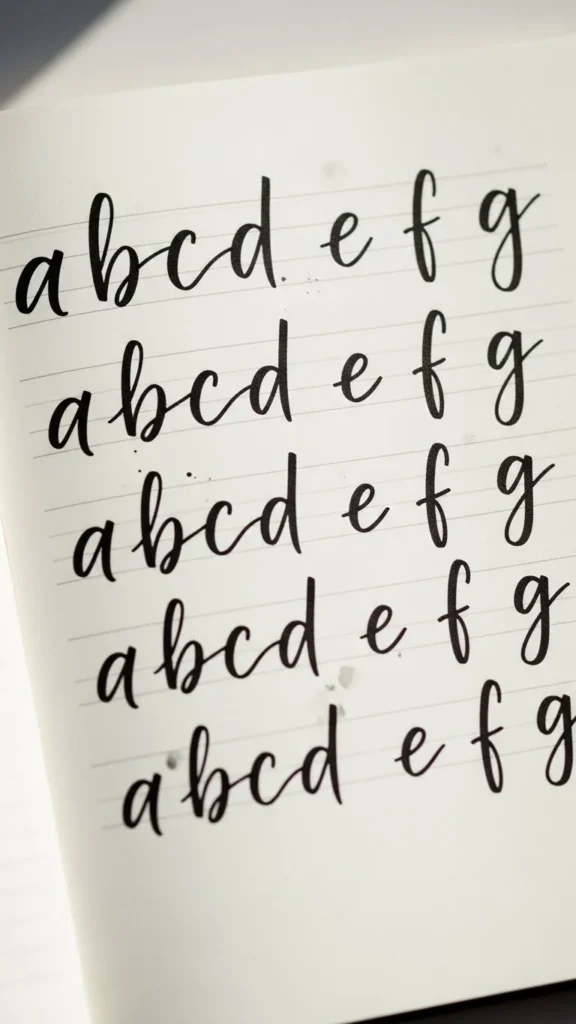 abcd e f g
abcd e f g
abcd e f g
abcd e f g
abcd e f g